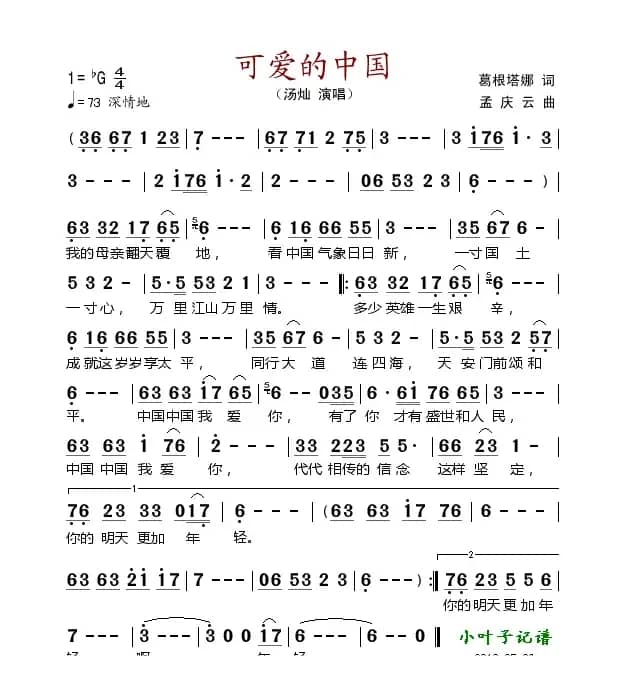 可爱的中国
1=♭G 4/4
♩=73 深情地
（汤灿 演唱）
葛根塔娜 词
孟庆云 曲
( 36 67 1 23 | 7 - - - | 67 71 2 75 | 3 - - - | 3 176 1·3 |
3 - - - | 2 176 1·2 | 2 - - - | 06 53 2 23 | 6 - - - )
63 32 17 65 | 6 - - - | 6 16 66 55 | 3 - - - | 35 67 6 - |
我的母亲翻天覆 地， 看中国气象日日 新， 一寸国 土
5 3 2 - | 5·5 53 2 1 | 3 - - - ‖: 63 32 17 65 | 6 - - - |
一寸心， 万 里江山万里 情。 多少英雄一生艰 辛，
6 16 66 55 | 3 - - - | 35 67 6 - | 5 3 2 - | 5·5 53 2 57 |
成就这岁岁享太 平， 同行大 道 连四海， 天 安门前颂和
6 - - - | 63 63 17 65 | 6 - - 035 | 6· 61 76 65 | 3 - - - |
平。 中国中国我 爱 你， 有了你 才有盛世和人民，
63 63 1 76 | 2 - - - | 33 223 5 5· | 66 23 1 - |
中国 中国 我 爱 你， 代代 相传的 信念 这样 坚 定，
1
76 23 33 017 | 6 - - - | ( 63 63 17 76 |
你的 明天 更加 年 轻。
63 63 21 17 | 7 - - - | 06 53 23 2 | 6 - - ) :‖ 76 23 5 5 6 |
2
你的明天更加年
7 - - - | 3 - - - | 3 0 0 17 | 6 - - - | 6 - - - ‖
小叶子记谱